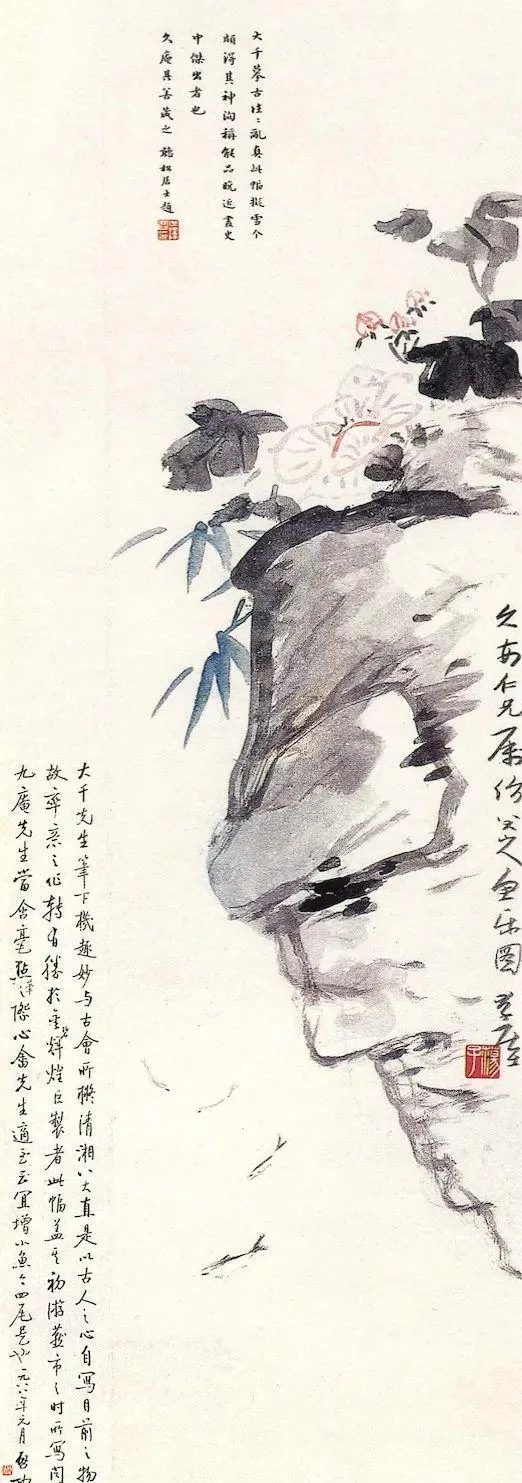 大千摹古往〻亂真此幅擬雪个
頗得其神洵稱能品晚近畫史
中傑出者也
久庵其善藏之 聽松居士題
久安仁兄屬仿八大魚樂圖
大千先生筆下機趣妙与古會所橅清湘八大直是以古人之心自寫目前之物
故率意之作轉有勝於金碧輝煌巨製者此幅蓋其初游燕市之時所寫聞
先生當含毫點 際心畬先生適至云宜增小魚 四尾是也 年元月 啟功